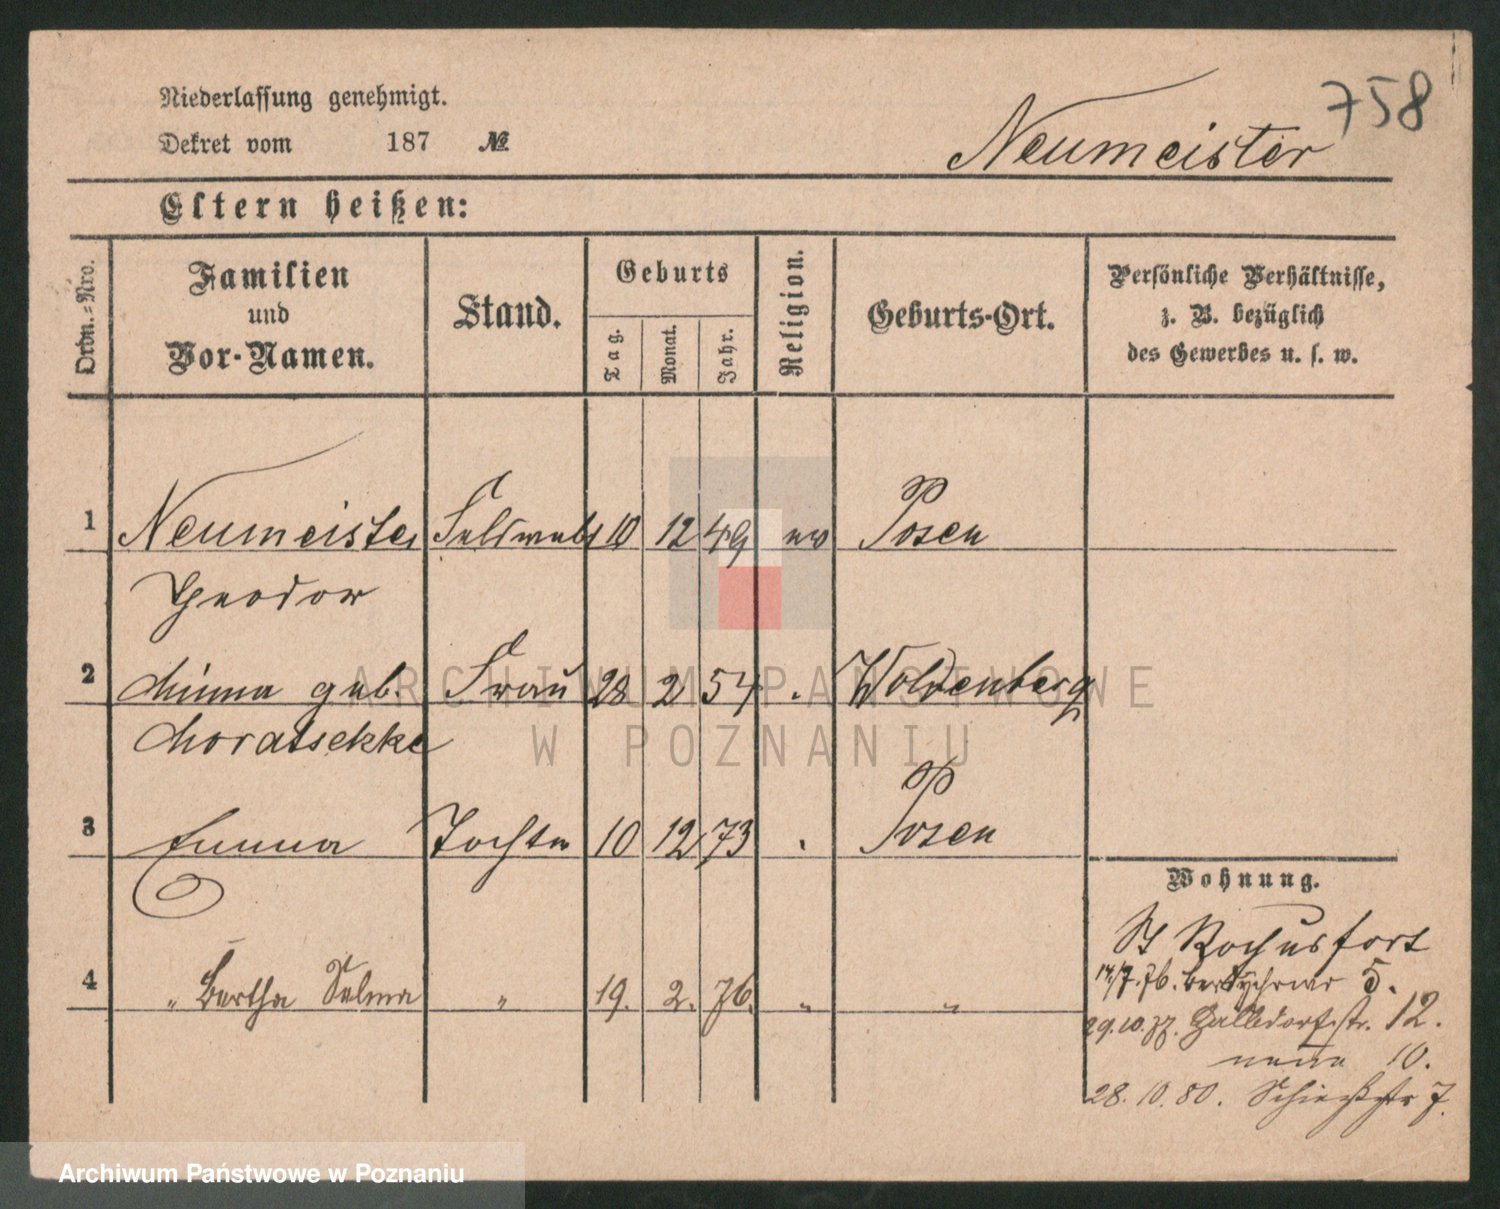 758
Niederlassung genehmigt.
Dekret vom 187 №
Neumeister
Eltern heißen:
Ordn.-Nro.
Familien und Vor-Namen.
Stand.
Geburts
Tag.
Monat.
Jahr.
Religion.
Geburts-Ort.
Persönliche Verhältnisse,
z. B. bezüglich
des Gewerbes u. s. w.
1 Neumeister Feldwebl 10 12 49 ev Posen
Theodor
2 Minna geb. Frau 28 2 54 " Woldenberg
3 Emma Tochter 10 12 73 " Posen
Wohnung.
St Rochusfort
4 " Bertha Selma " 19. 2. 76. " "
14/7. 76. 5.
29.10.77. 12.
neue 10.
28.10.80. Schießstr 7.
ARCHIWUM PAŃSTWOWE
W POZNANIU
Archiwum Państwowe w Poznaniu